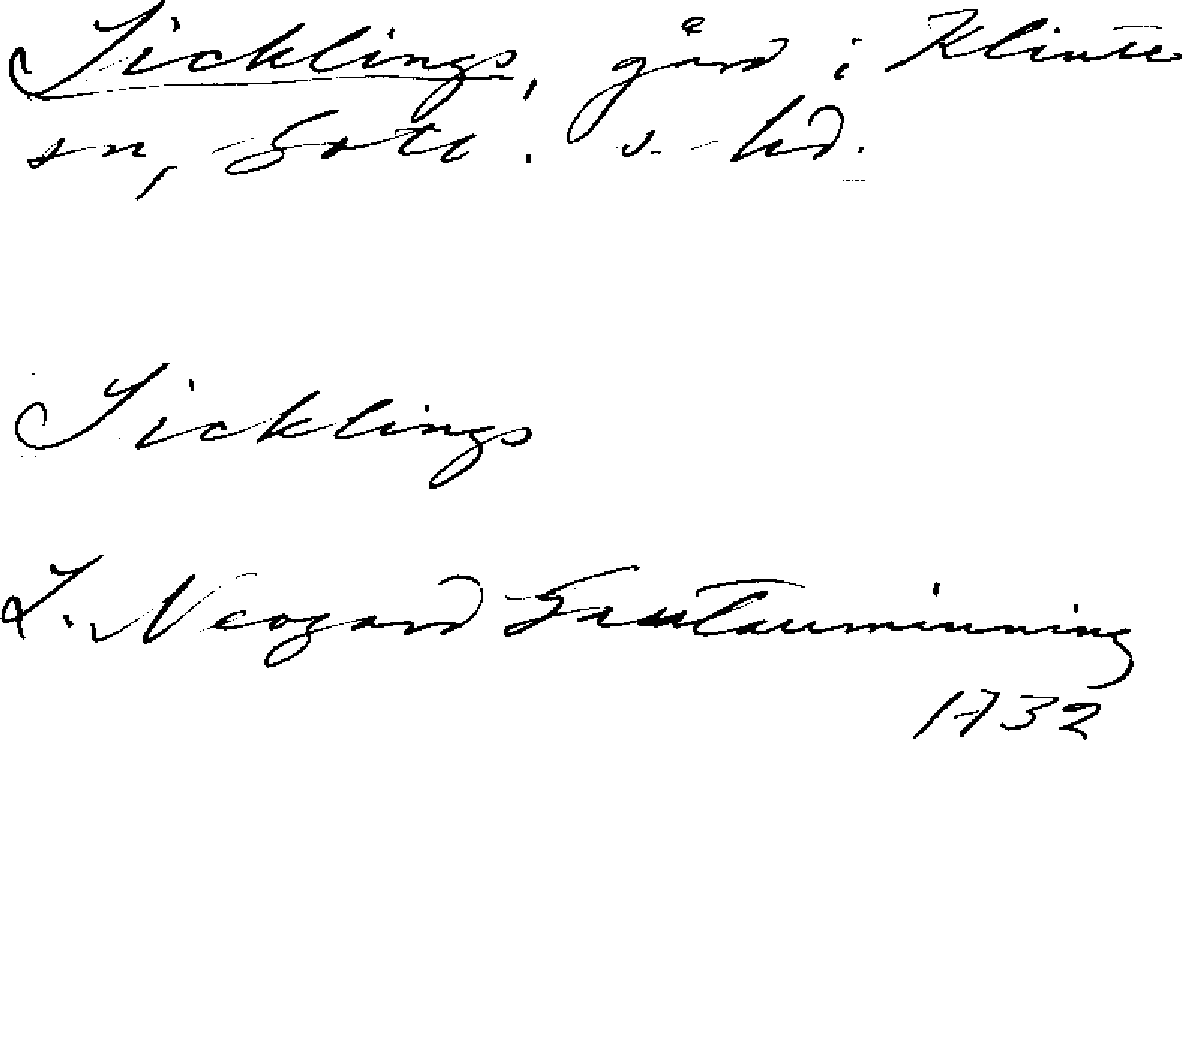 Sicklings, gård i Klinte
sn, Gotl. s. hd.
Sicklings
L. Neogard Gautauminning
1732